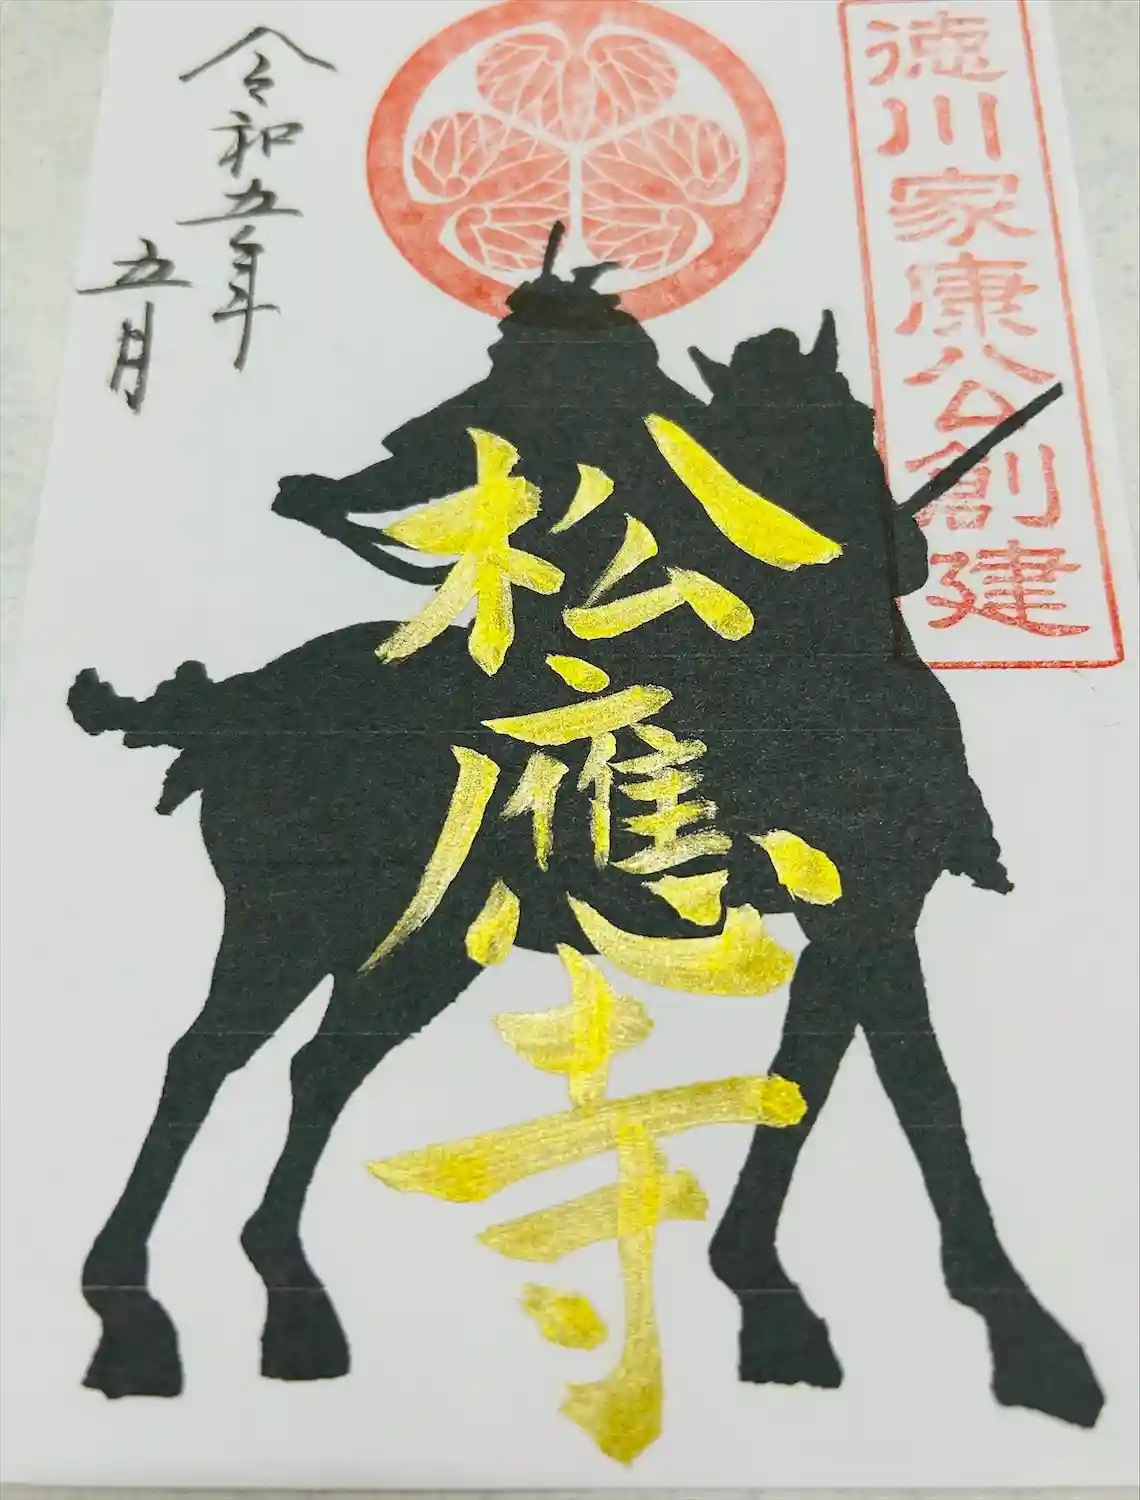 徳川家康公創建
松應寺
令和五年
五月